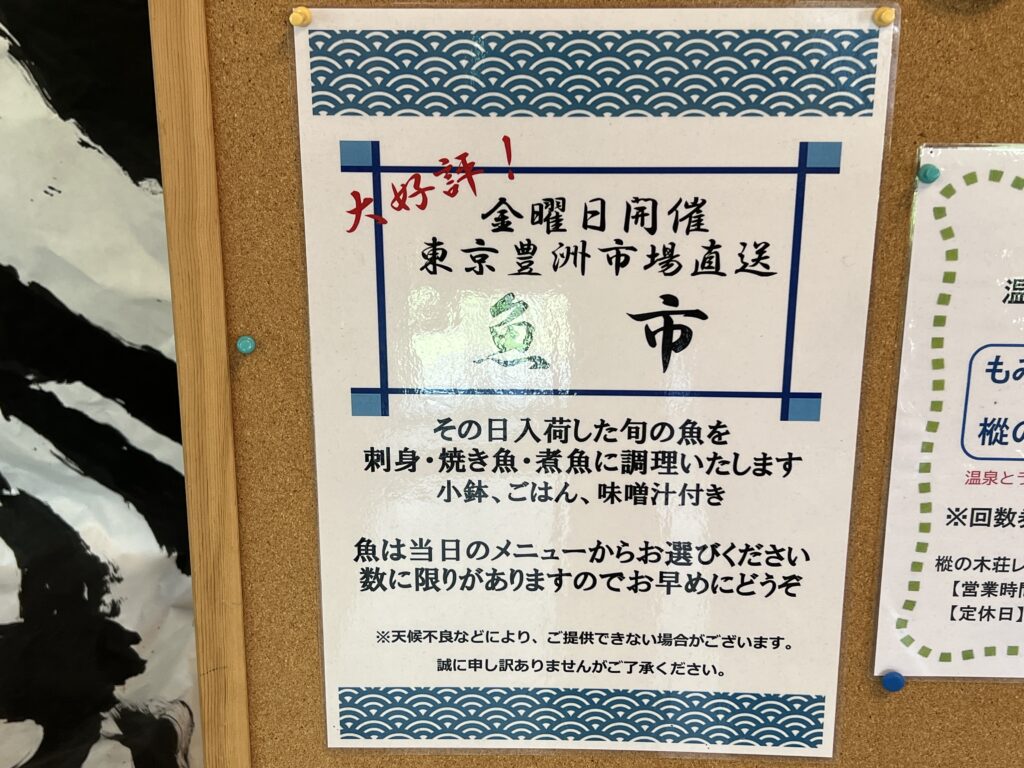 大好評！
金曜日開催
東京豊洲市場直送
魚 市
その日入荷した旬の魚を
刺身・焼き魚・煮魚に調理いたします
小鉢、ごはん、味噌汁付き
魚は当日のメニューからお選びください
数に限りがありますのでお早めにどうぞ
※天候不良などにより、ご提供できない場合がございます。
誠に申し訳ありませんがご了承ください。
温
もみ
樅の
温泉と
※回数
樅の木荘レ
【営業時間
【定休日】